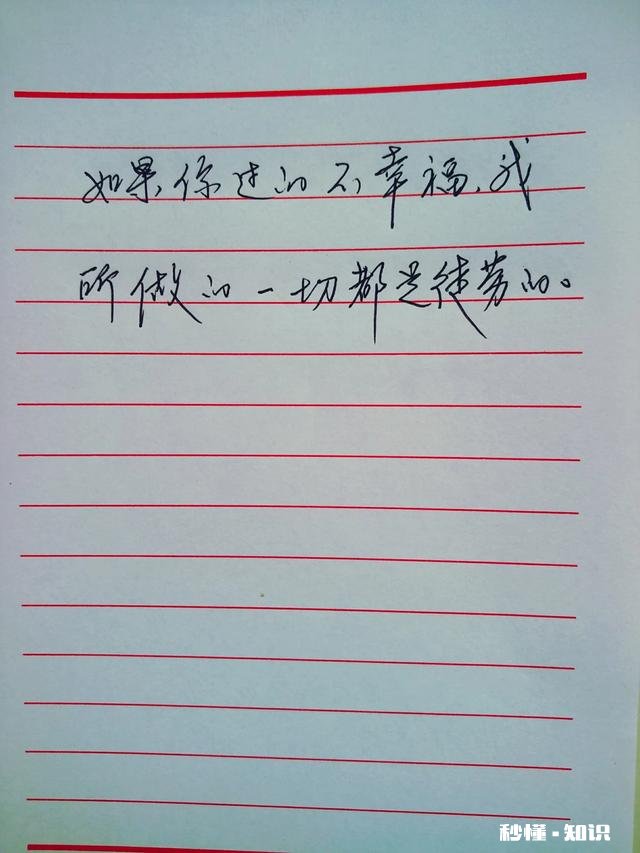 如果你过的不幸福、我
所做的一切都是徒劳的。
秒懂·知识